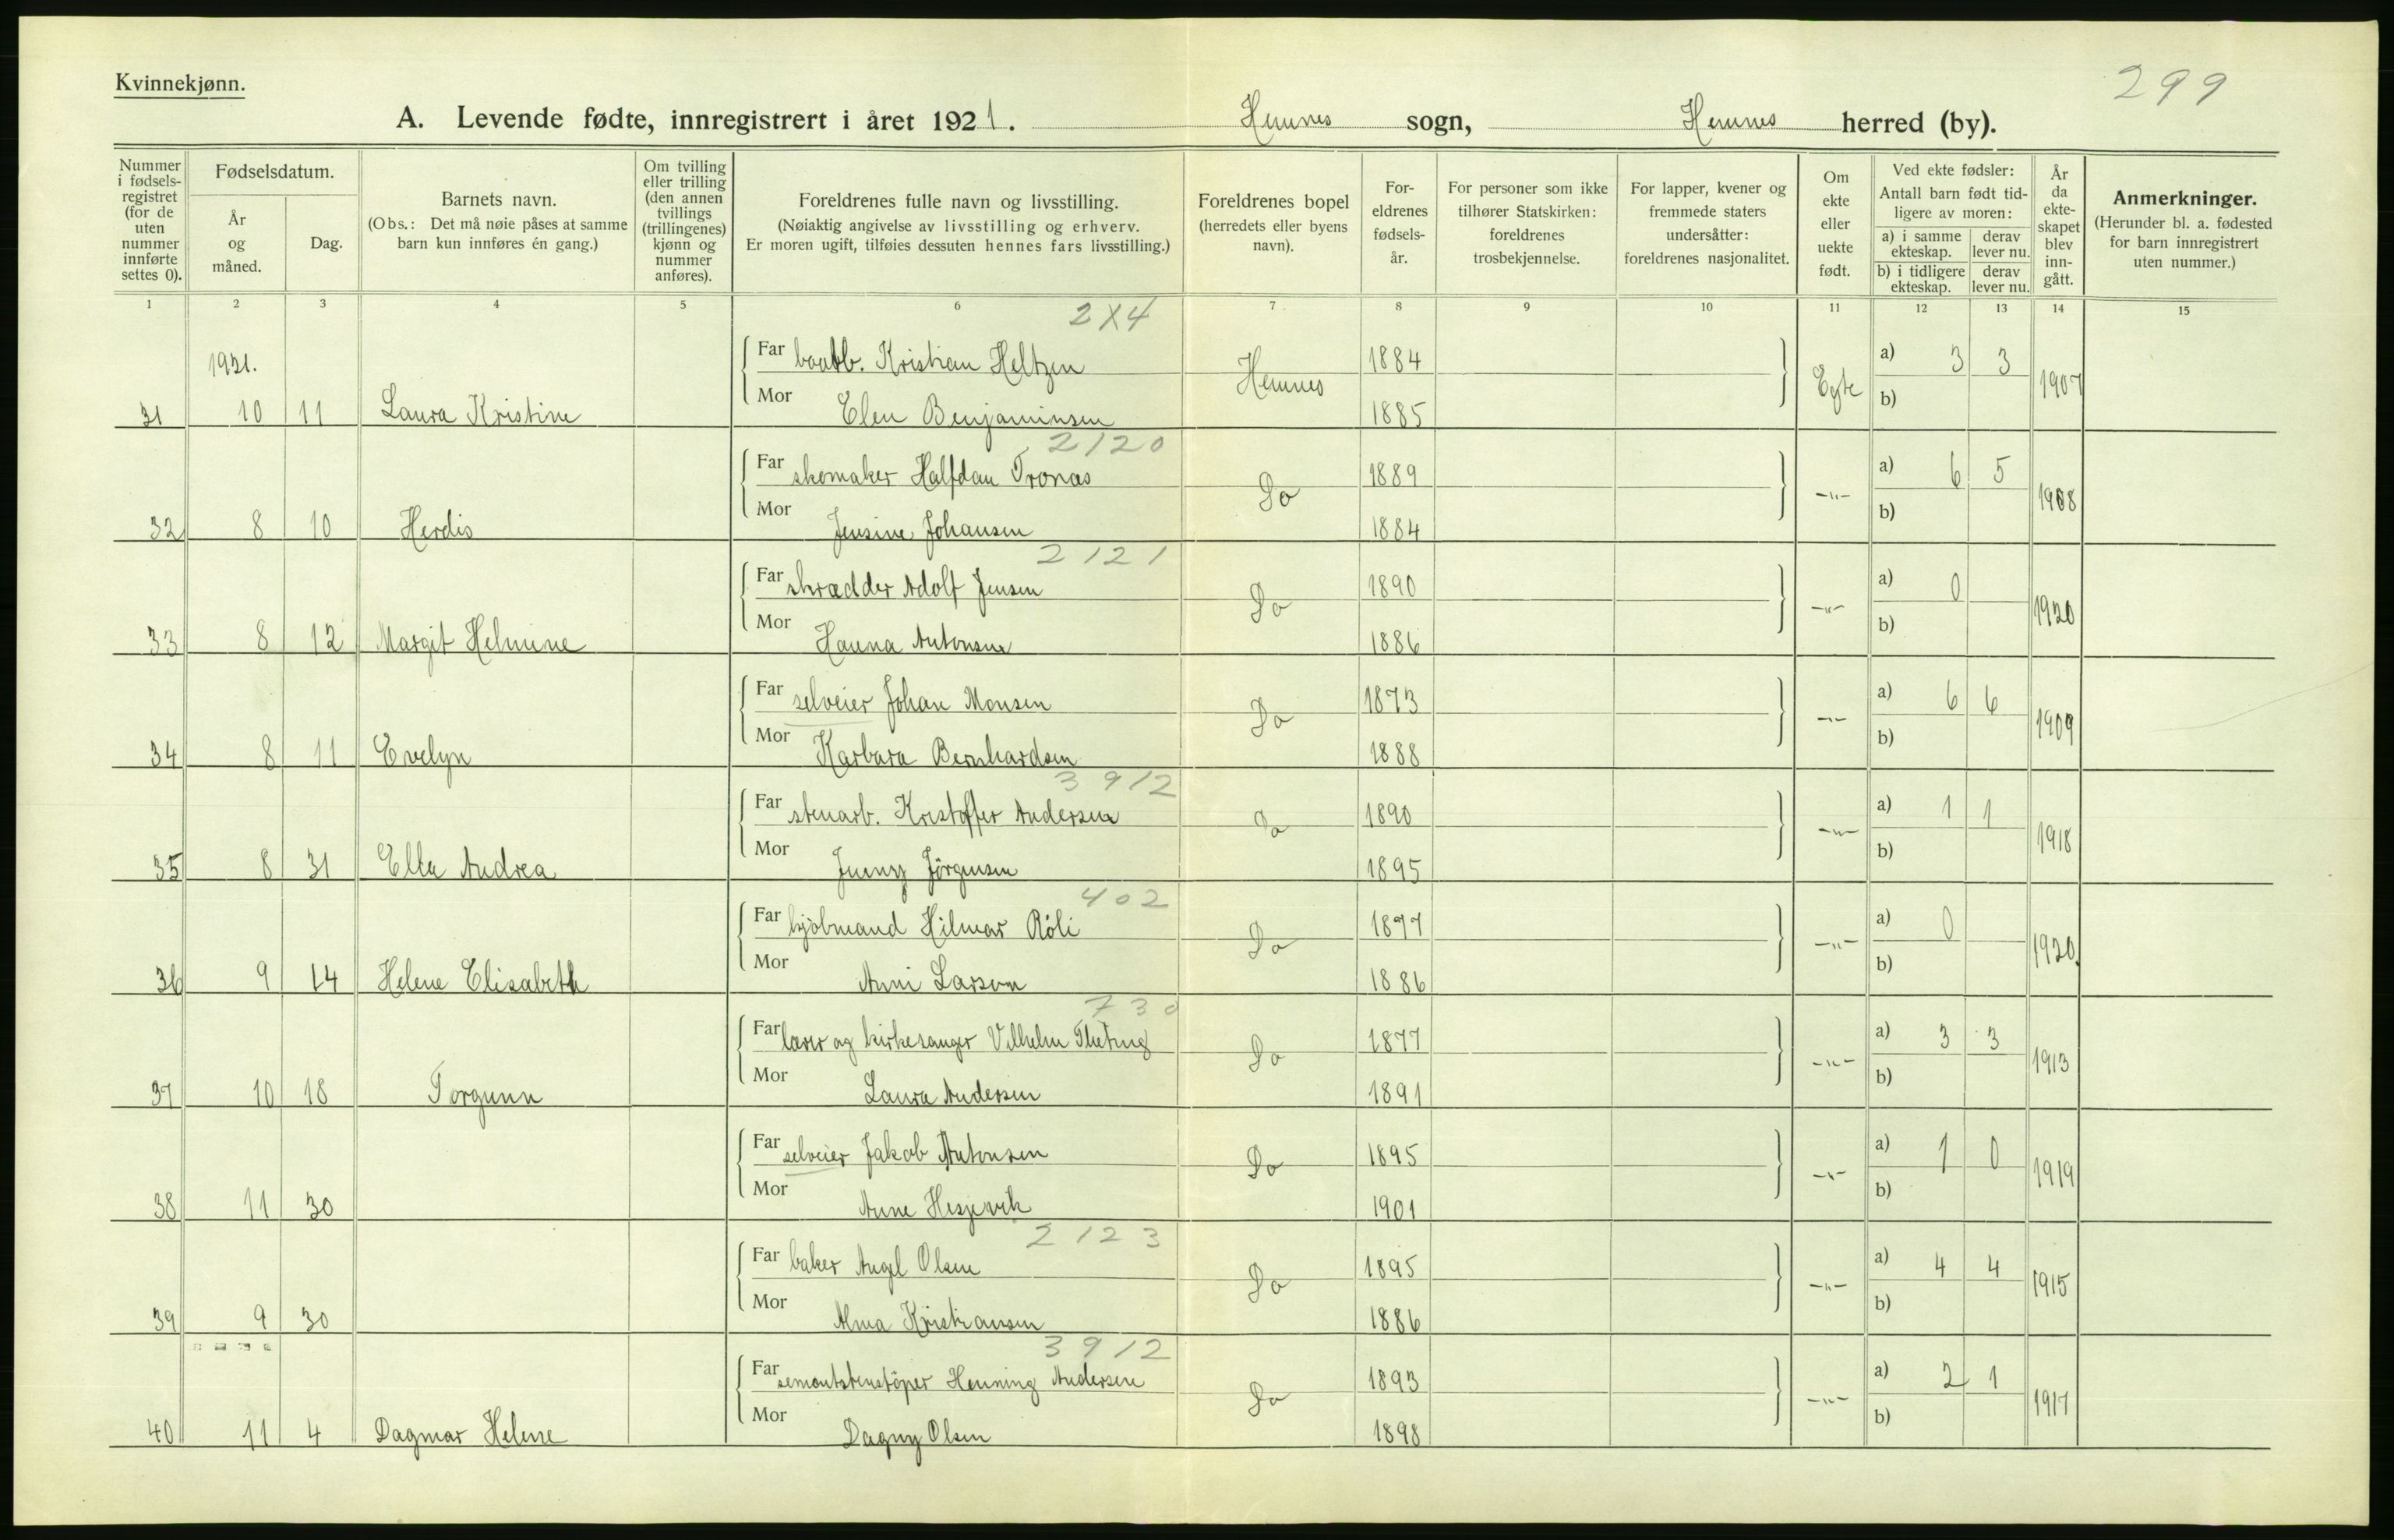 Kvinnekjønn.
299
A. Levende fødte, innregistrert i året 1921. Hemnes sogn, Hemnes herred (by).
Nummer i fødsels-registret (for de uten nummer innførte settes 0).
Fødselsdatum.
År og måned.
Dag.
Barnets navn.
(Obs.: Det må nøie påses at samme barn kun innføres én gang.)
Om tvilling eller trilling (den annen tvillings (trillingenes) kjønn og nummer anføres).
Foreldrenes fulle navn og livsstilling.
(Nøiaktig angivelse av livsstilling og erhverv.
Er moren ugift, tilføies dessuten hennes fars livsstilling.)
Foreldrenes bopel
(herredets eller byens navn).
For-eldrenes fødsels-år.
For personer som ikke tilhører Statskirken: foreldrenes trosbekjennelse.
For lapper, kvener og fremmede staters undersåtter: foreldrenes nasjonalitet.
Om ekte eller uekte født.
Ved ekte fødsler:
Antall barn født tid-ligere av moren:
a) i samme ekteskap. derav lever nu.
b) i tidligere ekteskap. derav lever nu.
År da ekte-skapet blev inn-gått.
Anmerkninger.
(Herunder bl. a. fødested for barn innregistrert uten nummer.)
1 2 3 4 5 6 7 8 9 10 11 12 13 14 15
2X4
1921.
Far Kristian Heltzen Hemnes 1884 Egte a) 3 3 1907
31 10 11 Laura Kristine Mor Elen Benjaminsen 1885 b)
2120
Far skomaker Halfdan Tronas Do 1889 -"- a) 6 5 1908
32 8 10 Herdis Mor Jensine Johansen 1884 b)
2121
Far skrædder Adolf Jensen Do 1890 -"- a) 0 1920
33 8 12 Margit Helmine Mor Hanna Antonsen 1886 b)
Far selveier Johan Monsen Do 1873 -"- a) 6 6 1909
34 8 11 Evelyn Mor Karbara Bernhardsen 1888 b)
3912
Far stenarb. Kristoffer Andersen Do 1890 -"- a) 1 1 1918
35 8 31 Ella Andrea Mor Jenny Jörgensen 1895 b)
402
Far kjöbmand Hilmar Röli Do 1897 -"- a) 0 1920.
36 9 14 Helene Elisabeth Mor Anni Larson 1886 b)
730
Far lærer og kirkesanger Vilhelm Do 1877 -"- a) 3 3 1913
37 10 18 Torgunn Mor Laura Andersen 1891 b)
Far selveier Jakob Antonsen Do 1895 -"- a) 1 0 1919
38 11 30 Mor Anne Hesjevik 1901 b)
2123
Far baker Angel Olsen Do 1895 -"- a) 4 4 1915
39 9 30 Mor Alma Kristiansen 1886 b)
3912
Far sementstenstöper Henning Andersen Do 1893 -"- a) 2 1 1917
40 11 4 Dagmar Helene Mor Dagny Olsen 1898 b)